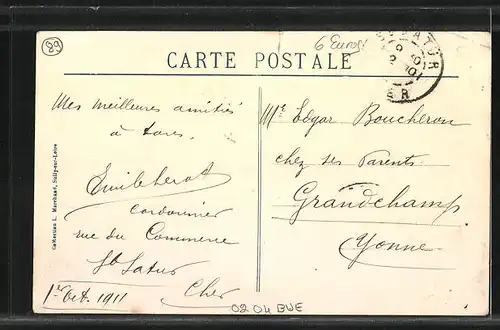 89
6 Euros
CARTE POSTALE
Mes meilleures amitiés
à tous.
cordonnier
rue du Commerce
St Satur
Cher
1er Oct. 1911
Mr Edgar Boucheron
chez ses Parents
Grandchamp
Yonne
Collection L. Marchand, Sully-sur-Loire
0204 BUE